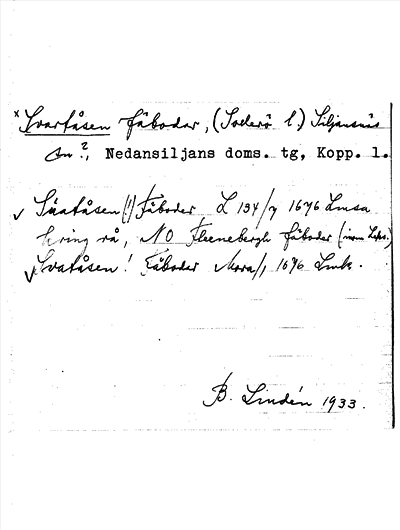 x Svartåsen fäbodar, (Sollerö l.) Siljansnäs
sn ?, Nedansiljans doms. tg, Kopp. l.
✓ Suatåsen (!) Fäboder L 134/7 1676 Lmsa
kring rå, NO Fleenebergh fäboder (inom Leks.)
✓ Svatåsen! Fäboder Mora/1 1676 Lmk.
B. Lindén 1933.